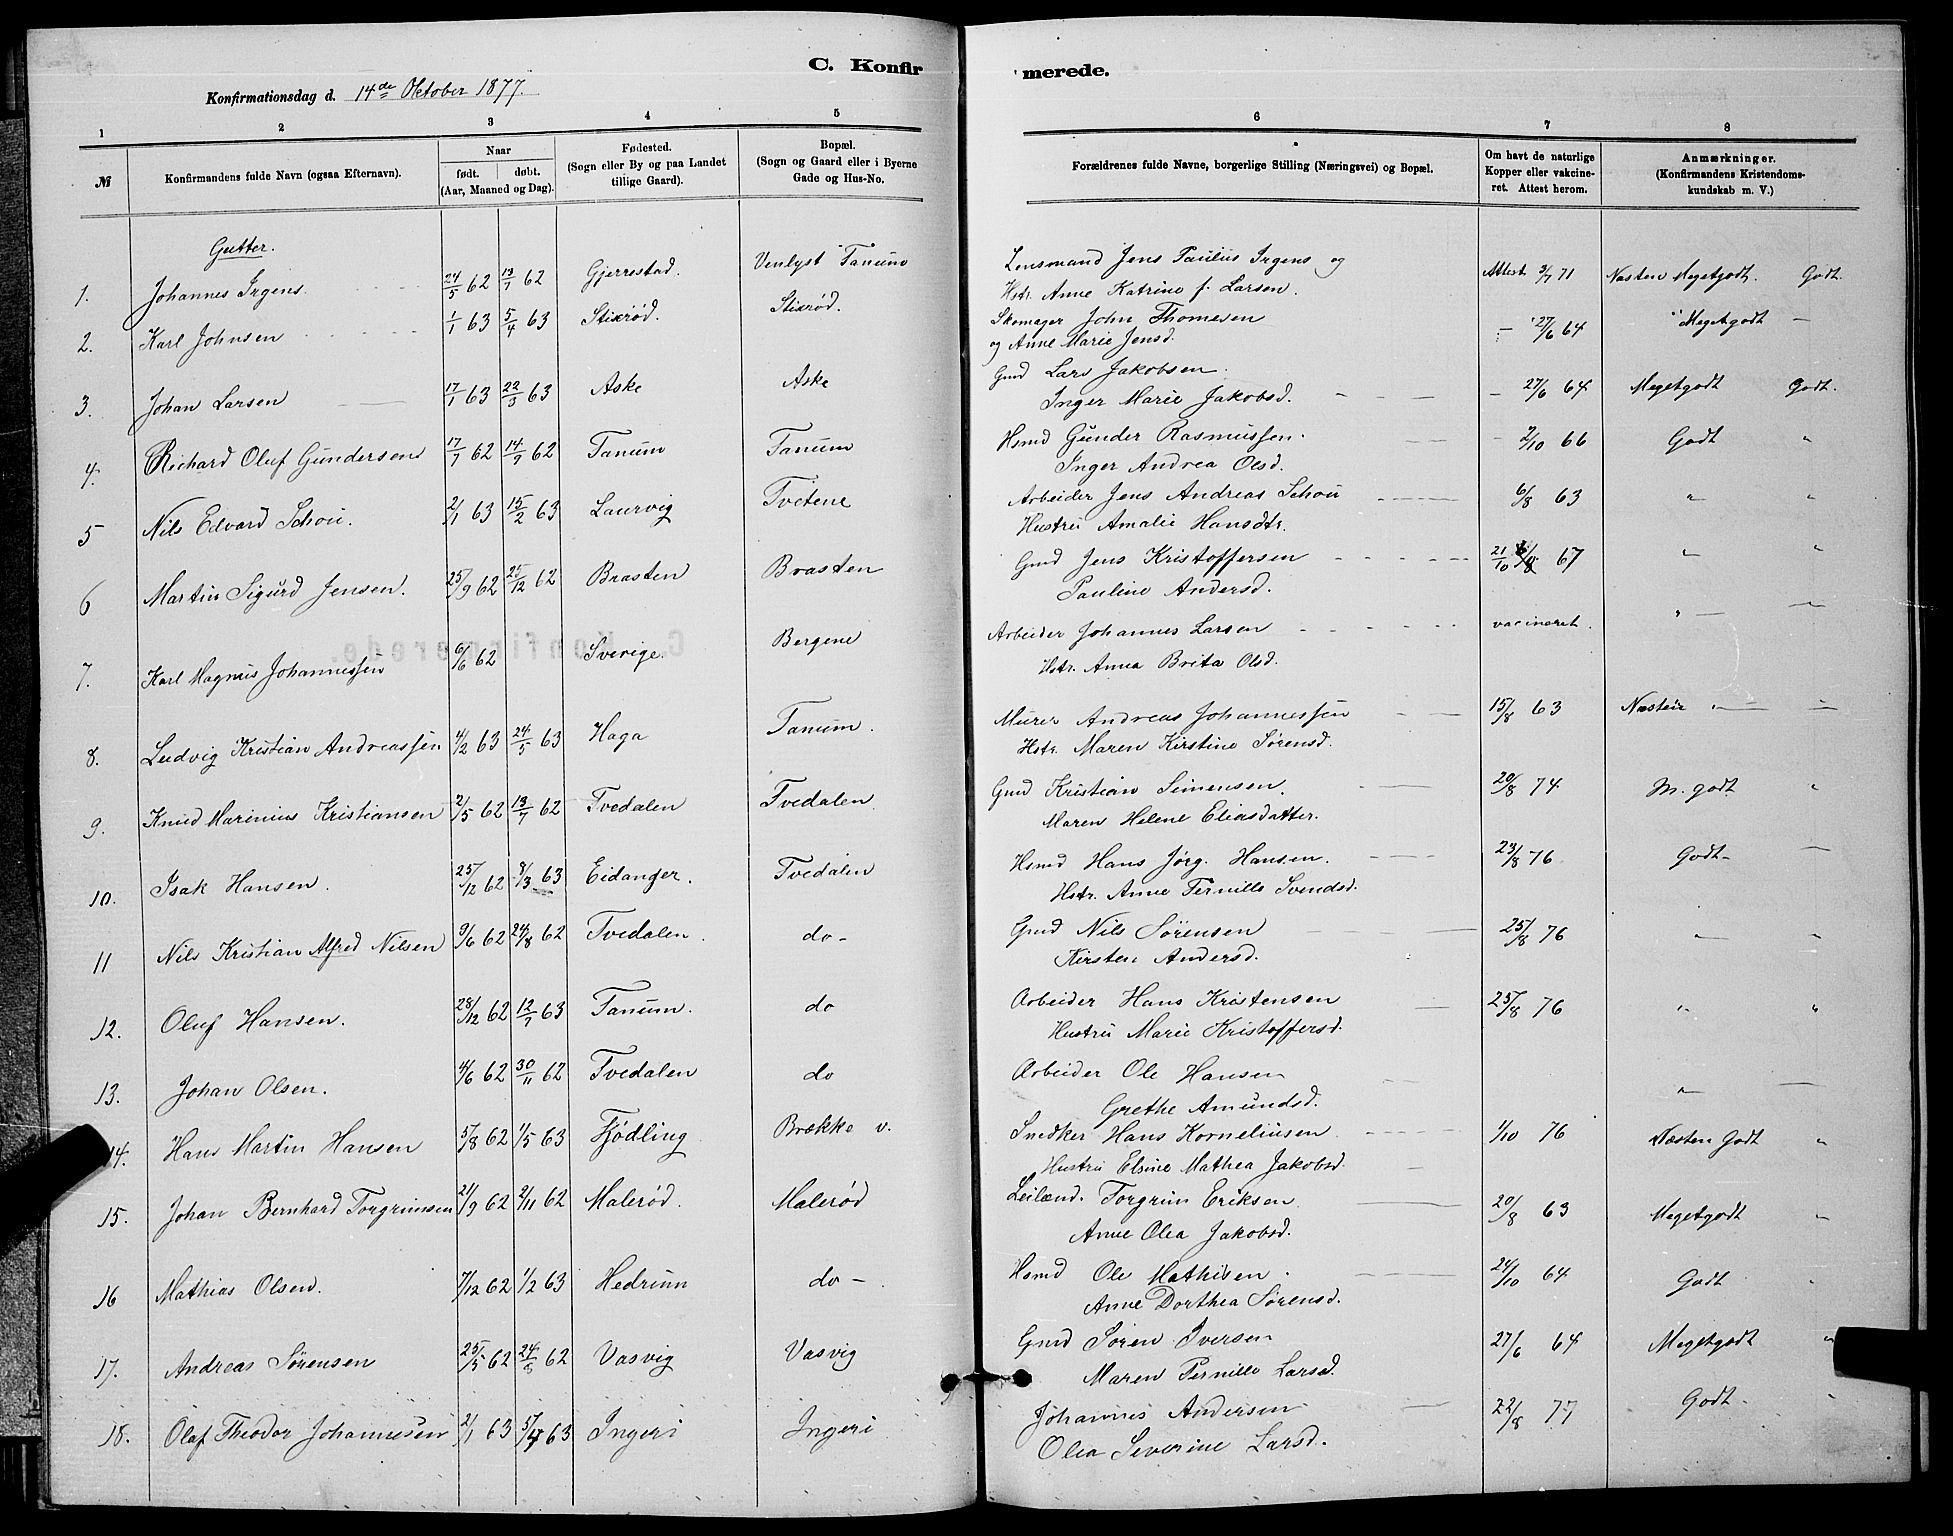 C. Konfirmerede.
Konfirmationsdag d. 14de Oktober 1877.
1 2 3 4 5 6 7 8
№ | Konfirmandens fulde Navn (ogsaa Efternavn). | Naar født. døbt. (Aar, Maaned og Dag). | Fødested. (Sogn eller By og paa Landet tillige Gaard). | Bopæl. (Sogn og Gaard eller i Byerne Gade og Hus-No. | Forældrenes fulde Navne, borgerlige Stilling (Næringsvei) og Bopæl. | Om havt de naturlige Kopper eller vakcineret. Attest herom. | Anmærkninger. (Konfirmandens Kristendomskundskab m. V.)
Gutter.
1. Johannes Irgens. 24/5 62 13/7 62 Gjerrestad. Venlyst Tanum Lensmand Jens Paulus Irgens og Attest 3/7 71 Næsten Megetgodt. Godt.
Hstr. Anne Katrine f. Larsen.
2. Karl Johnsen 1/1 63 5/4 63 Stixrød. Stixrød. Skomager John Thomesen - 27/6 64 " Megetgodt —
og Anne Marie Jensd.
3. Johan Larsen 17/1 63 22/3 63 Aske Aske Gmd Lars Jakobsen. - 27/6 64 Megetgodt Godt.
Inger Marie Jakobsd.
4. Richard Oluf Gundersen 17/7 62 14/9 62 Tanum Tanum Hsmd Gunder Rasmussen. - 2/10 66 Godt "
Inger Andrea Olsd.
5 Nils Edvard Schou. 2/1 63 15/2 63 Laurvig Tvetene Arbeider Jens Andreas Schou 6/8 63 " "
Hustru Amalie Hansdtr.
6 Martin Sigurd Jensen. 25/9 62 25/12 62 Brasten Brasten Gmd Jens Kristoffersen 21/10 67 " "
Pauline Andersd.
7. Karl Magnus Johannessen 6/6 62 Sverige. Bergene Arbeider Johannes Larsen vacineret. " — —
Hstr. Anna Brita Olsd.
8. Ludvig Kristian Andreassen 4/2 63 24/5 63 Haga Tanum. Murer Andreas Johannessen 15/8 63 Næsten " —
Hstr. Maren Kirstine Sørensd.
9. Knud Marinius Kristiansen 2/5 62 13/7 62 Tvedalen Tvedalen. Gmd Kristian Simensen. 20/8 74 M. godt "
Maren Helene Eliasdatter.
10. Isak Hansen. 25/12 62 8/3 63 Eidanger. Tvedalen Hsmd Hans Jørg. Hansen. 23/8 76 Godt- —
Hstr. Anne Pernille Svendsd.
11 Nils Kristian Alfred Nilsen 9/6 62 24/8 62 Tvedalen. do- Gmd Nils Sørensen 25/8 76 " "
Kirsten Andersd.
12. Oluf Hansen. 28/12 62 12/7 63 Tanum. do Arbeider Hans Kristensen 25/8 76 " "
Hustru Marie Kristoffersd.
13. Johan Olsen. 4/6 62 30/11 62 Tvedalen do Arbeider Ole Hansen " —
Grethe Amundsd.
14. Hans Martin Hansen 5/8 62 1/5 63 Fjødling Brække v. Snedker Hans Korneliusen 1/10 76 Næsten Godt "
Hustru Elsine Mathea Jakobsd.
15. Johan Bernhard Torgrimsen 21/9 62 2/11 62 Malerød. Malerød Leilænd. Torgrim Eriksen 20/8 63 Megetgodt "
Anne Olea Jakobsd.
16 Mathias Olsen. 7/12 62 1/2 63 Hedrum do- Hsmd Ole Mathisen. 24/10 64 Godt "
Anne Dorthea Sørensd.
17. Andreas Sørensen 25/5 62 24/8 62 Vasvig Vasvig Gmd Søren Iversen 27/6 64 Megetgodt "
Maren Pernille Larsd.
18. Olaf Theodor Johannesen 2/1 63 5/4 63 Ingeri Ingeri Johannes Andersen 22/8 77 Godt.
Olea Severine Larsd.